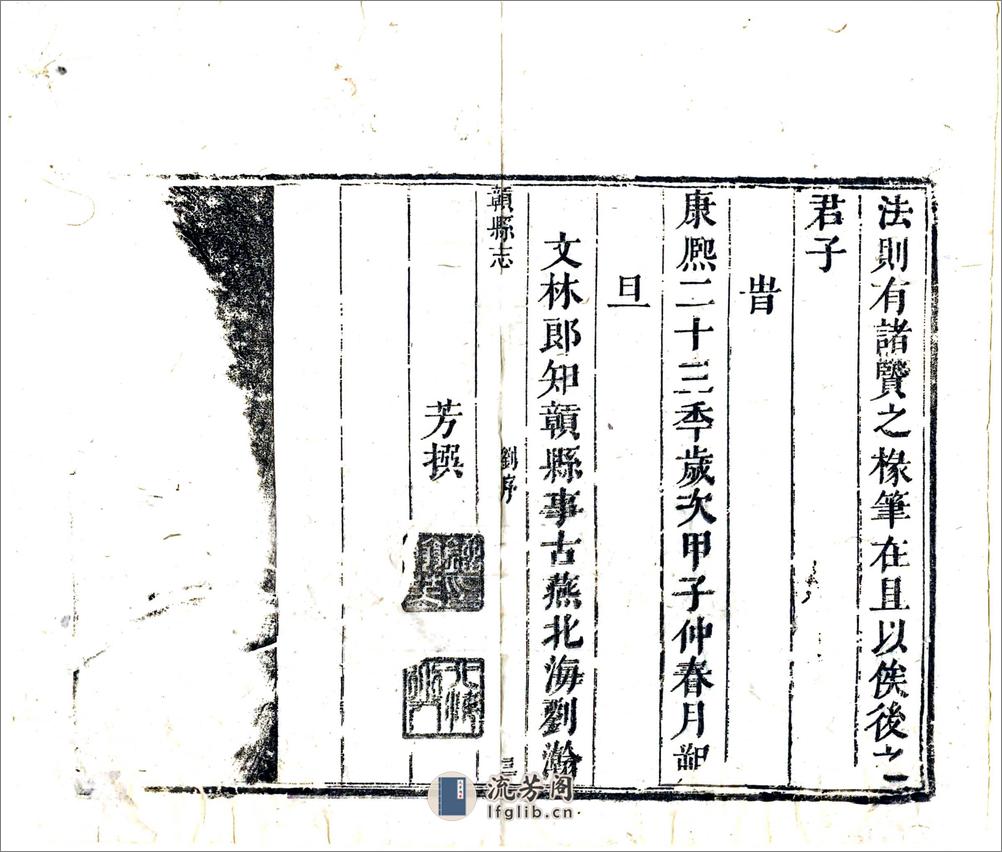 法則有諸賢之椽筆在且以俟後之
君子
旹
康熈二十三季歲次甲子仲春月朔
旦
文林郎知贛縣事古燕北海劉瀚
贛縣志
劉序
三
芳撰
流芳阁
lfglib.cn